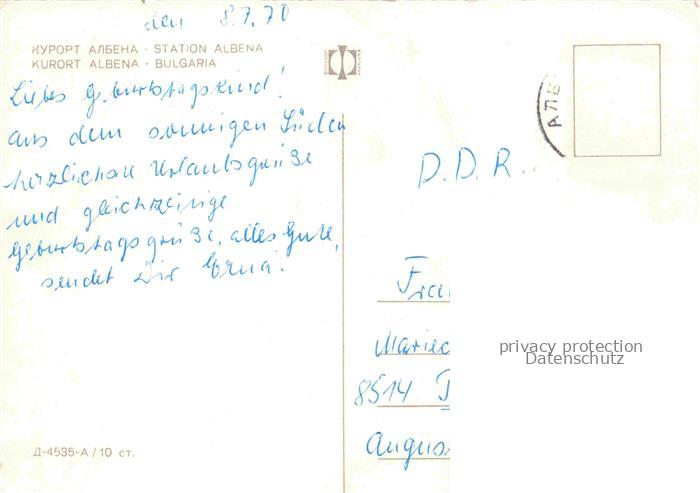 den 8.7.70
КУРОРТ АЛБЕНА · STATION ALBENA
KURORT ALBENA · BULGARIA
Liebes Geburtstagskind!
aus dem sonnigen Süden
herzlichste Urlaubsgrüße
und gleichzeitige
Geburtstagsgrüße, alles Gute,
sendet Dir Erna.
Д-4535-А / 10 ст.
АЛБЕ
D.D.R.
Frau
Mariec
8514 P
Augus
privacy protection
Datenschutz